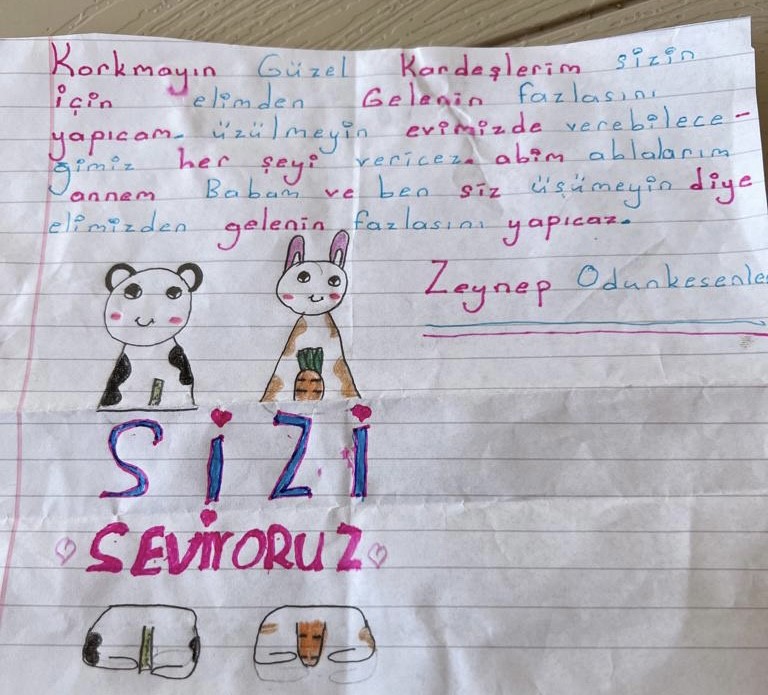 Korkmayın Güzel Kardeşlerim sizin
için elimden Gelenin fazlasını
yapıcam. üzülmeyin evimizde verebilece-
ğimiz her şeyi vericez. abim ablalarım
annem Babam ve ben siz üşümeyin diye
elimizden gelenin fazlasını yapıcaz.
Zeynep Odunkesenle
SİZİ
SEVİYORUZ